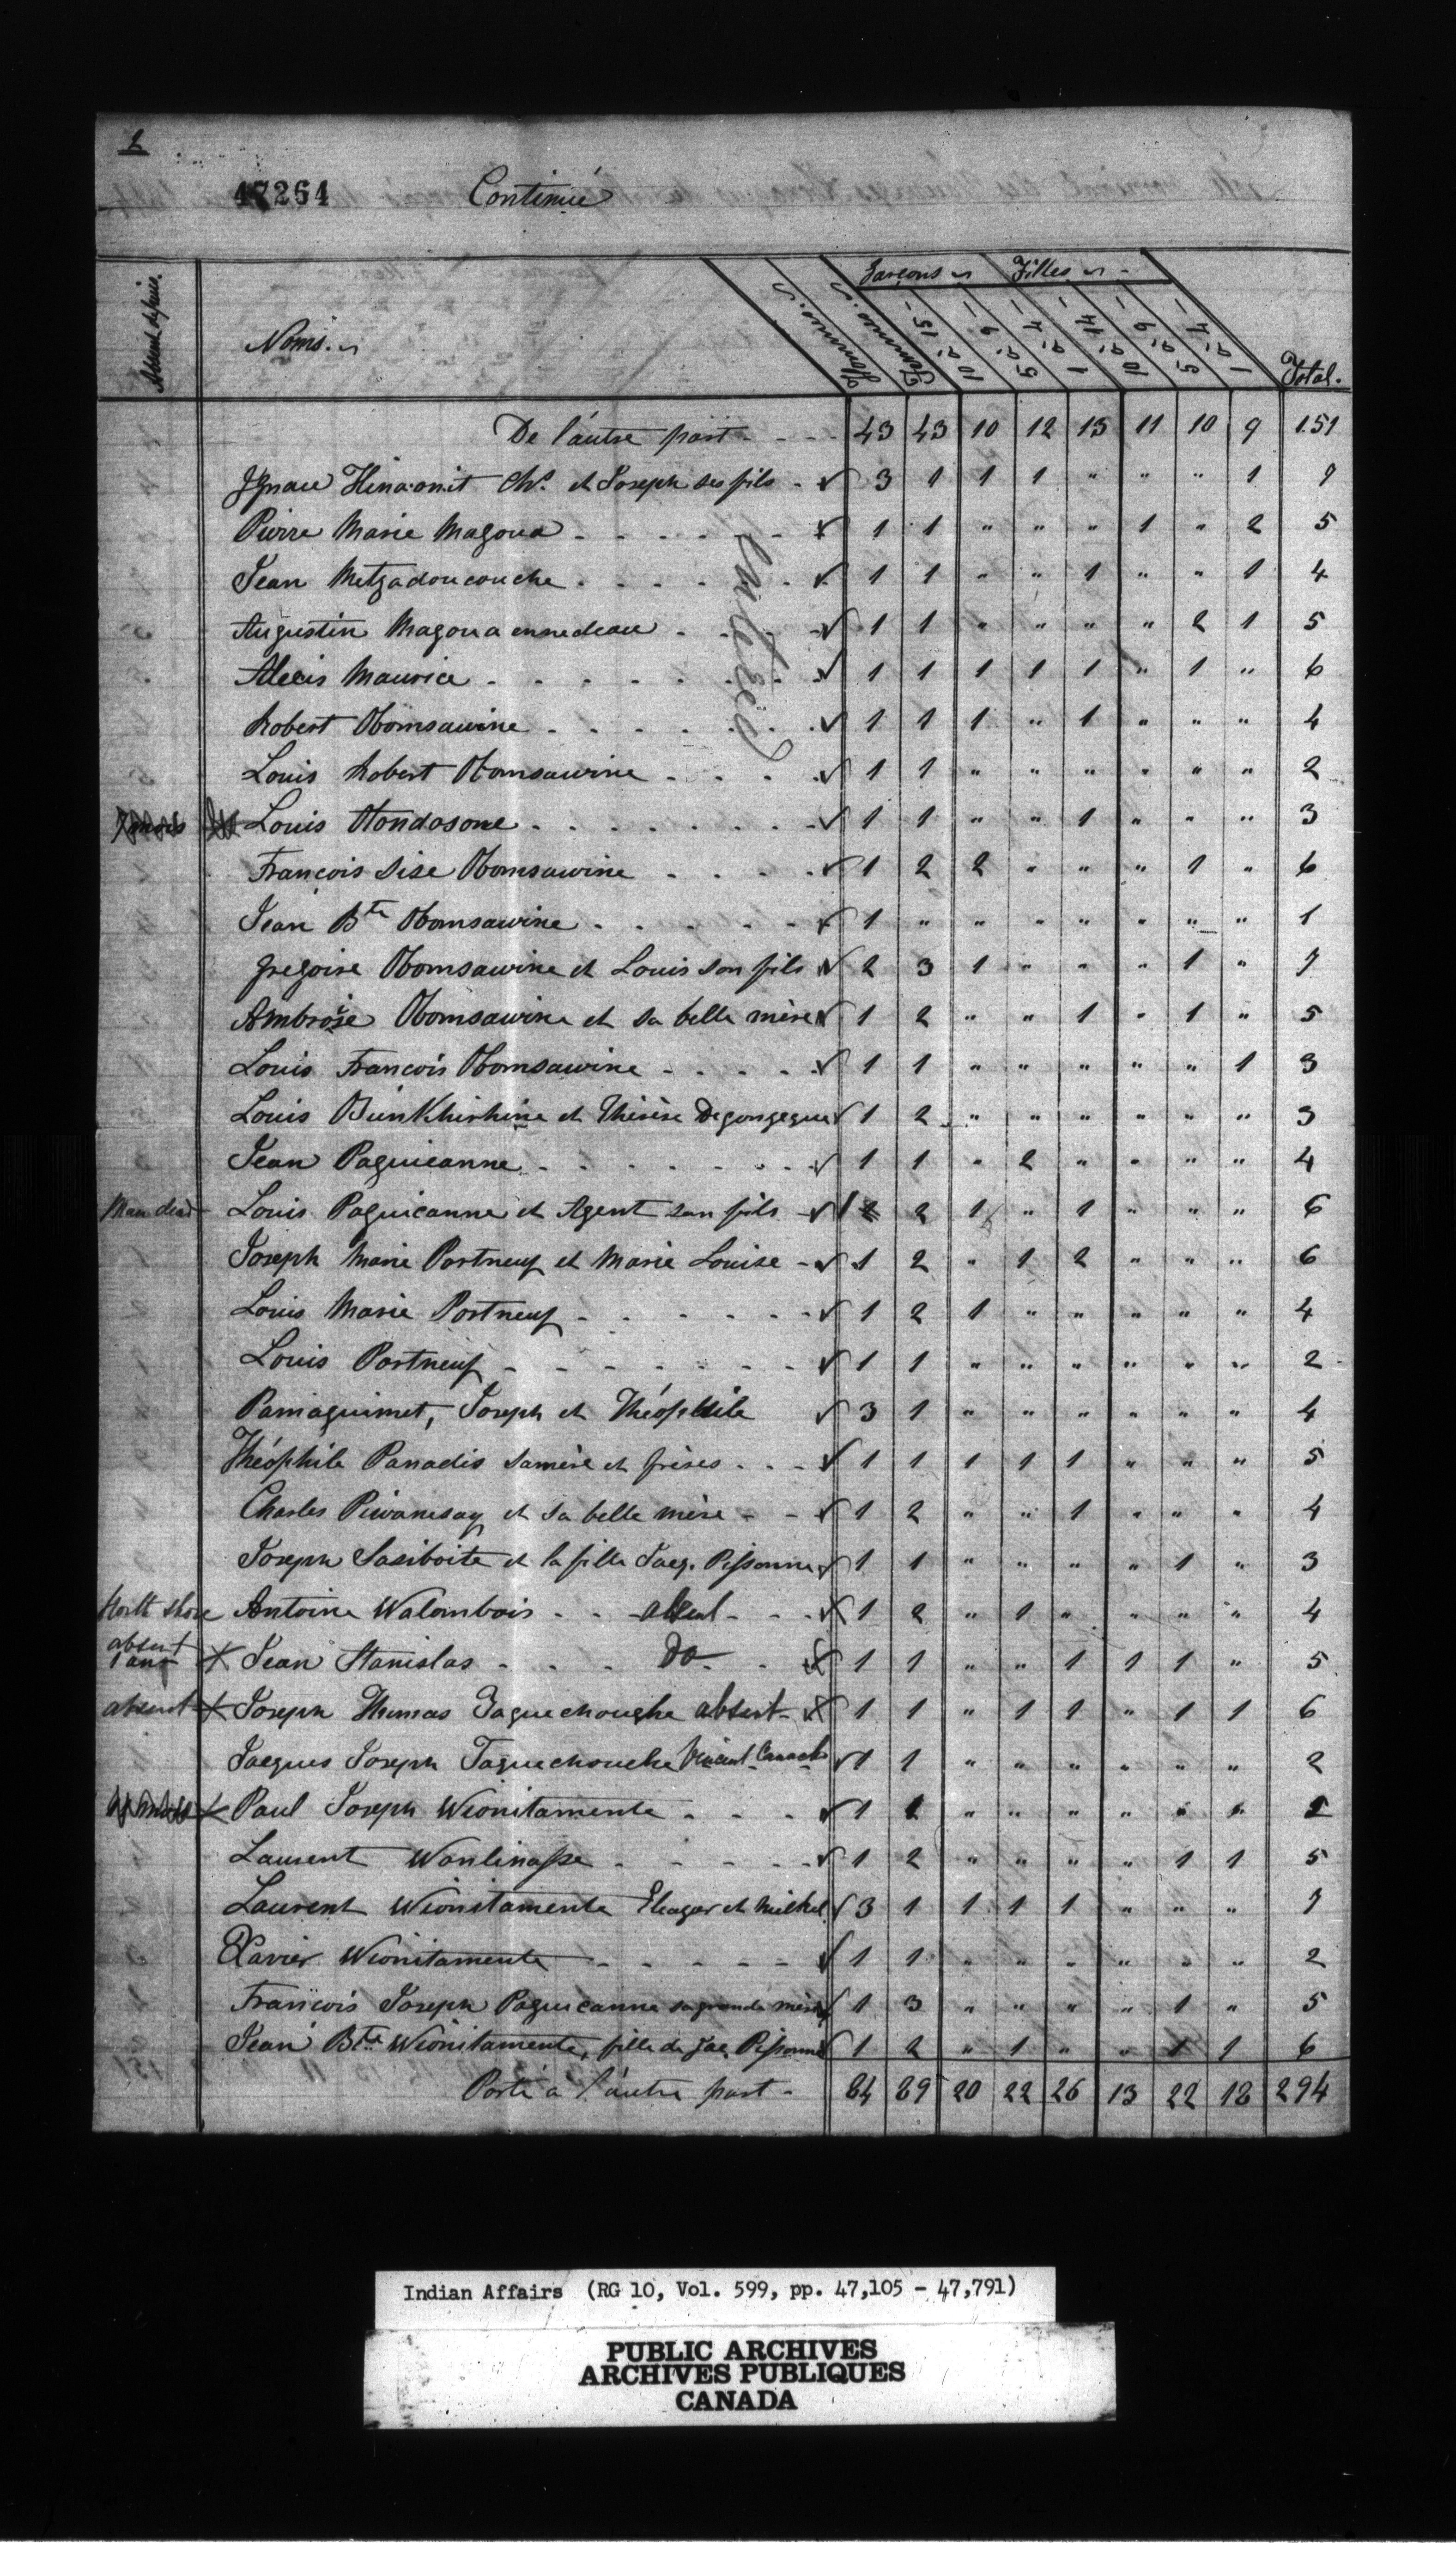 2
47264 Continué
Absent depuis.
Noms.
Hommes.
Femmes.
Garçons
Filles
10 à 15
5 à 9
1 à 4
10 à 14
5 à 9
1 à 4
Total.
De l'autre part - - - - 43 43 10 12 13 11 10 9 151
Ignace Hinaonit Chs. et Joseph ses fils - ✓ 3 1 1 1 " " " 1 7
Pierre Marie Magoua - - - - - - x 1 1 " " " 1 " 2 5
Jean Metzadoucouche - - - - - - ✓ 1 1 " " 1 " " 1 4
Augustin Magoua ennedeau - - - ✓ 1 1 " " " " 2 1 5
Alexis Maurice - - - - - - - ✓ 1 1 1 1 1 " 1 " 6
Robert Obomsawine - - - - - - ✓ 1 1 1 " 1 " " " 4
Louis Robert Obomsawine - - - - ✓ 1 1 " " " " " " 2
Louis Otondosone - - - - - - - ✓ 1 1 " " 1 " " " 3
François Sise Obomsawine - - - - ✓ 1 2 2 " " " 1 " 6
Jean Bte Obomsawine - - - - - ✓ 1 " " " " " " " 1
Gregoire Obomsawine et Louis son fils ✓ 2 3 1 " " " 1 " 7
Ambroise Obomsawine et sa belle mère ✓ 1 2 " " 1 " 1 " 5
Louis François Obomsawine - - - - ✓ 1 1 " " " " " 1 3
Louis Otondosone
Louis et Thérèse Degonzague ✓ 1 2 " " " " " " 3
Jean Paguicanne - - - - - - - ✓ 1 1 " 2 " " " " 4
Man dead Louis Paguicanne et Agent son fils - ✓ 1 2 2 1 " 1 " " " 6
Joseph Marie Portneuf et Marie Louise - ✓ 1 2 " 1 2 " " " 6
Louis Marie Portneuf - - - - - - ✓ 1 2 1 " " " " " 4
Louis Portneuf - - - - - - - ✓ 1 1 " " " " " " 2
Pamaguimet, Joseph et Théophile ✓ 3 1 " " " " " " 4
Théophile Panadis sa mère et frères - - - ✓ 1 1 1 1 1 " " " 5
Charles Piwanesay et sa belle mère - - ✓ 1 2 " " 1 " " " 4
Joseph Sasiboite et la fille Jacq. Pissonne ✓ 1 1 " " " " 1 " 3
North shore Antoine Walombois - - absent - - - x 1 2 " 1 " " " " 4
absent 1 an x Jean Stanislas - - - Do - - x 1 1 " " 1 1 1 " 5
absent x Joseph Thomas Taguechouche absent - x 1 1 " 1 1 " 1 1 6
Jacques Joseph Taguechouche Vincent Canach ✓ 1 1 " " " " " " 2
x Paul Joseph Wionitamente - - - - ✓ 1 1 " " " " " " 2
Laurent Wanlinasse - - - - - ✓ 1 2 " " " " 1 1 5
Laurent Wionitamente Eleazar et Michel ✓ 3 1 1 1 1 " " " 7
Xavier Wionitamente - - - - - ✓ 1 1 " " " " " " 2
François Joseph Paguicanne sa grande mère ✓ 1 3 " " " " 1 " 5
Jean Bte Wionitamente, fille de Jac. Pissonne ✓ 1 2 " 1 " " 1 1 6
Porté à l'autre part - 84 89 20 22 26 13 22 18 294
Entered
Indian Affairs (RG 10, Vol. 599, pp. 47,105 - 47,791)
PUBLIC ARCHIVES
ARCHIVES PUBLIQUES
CANADA